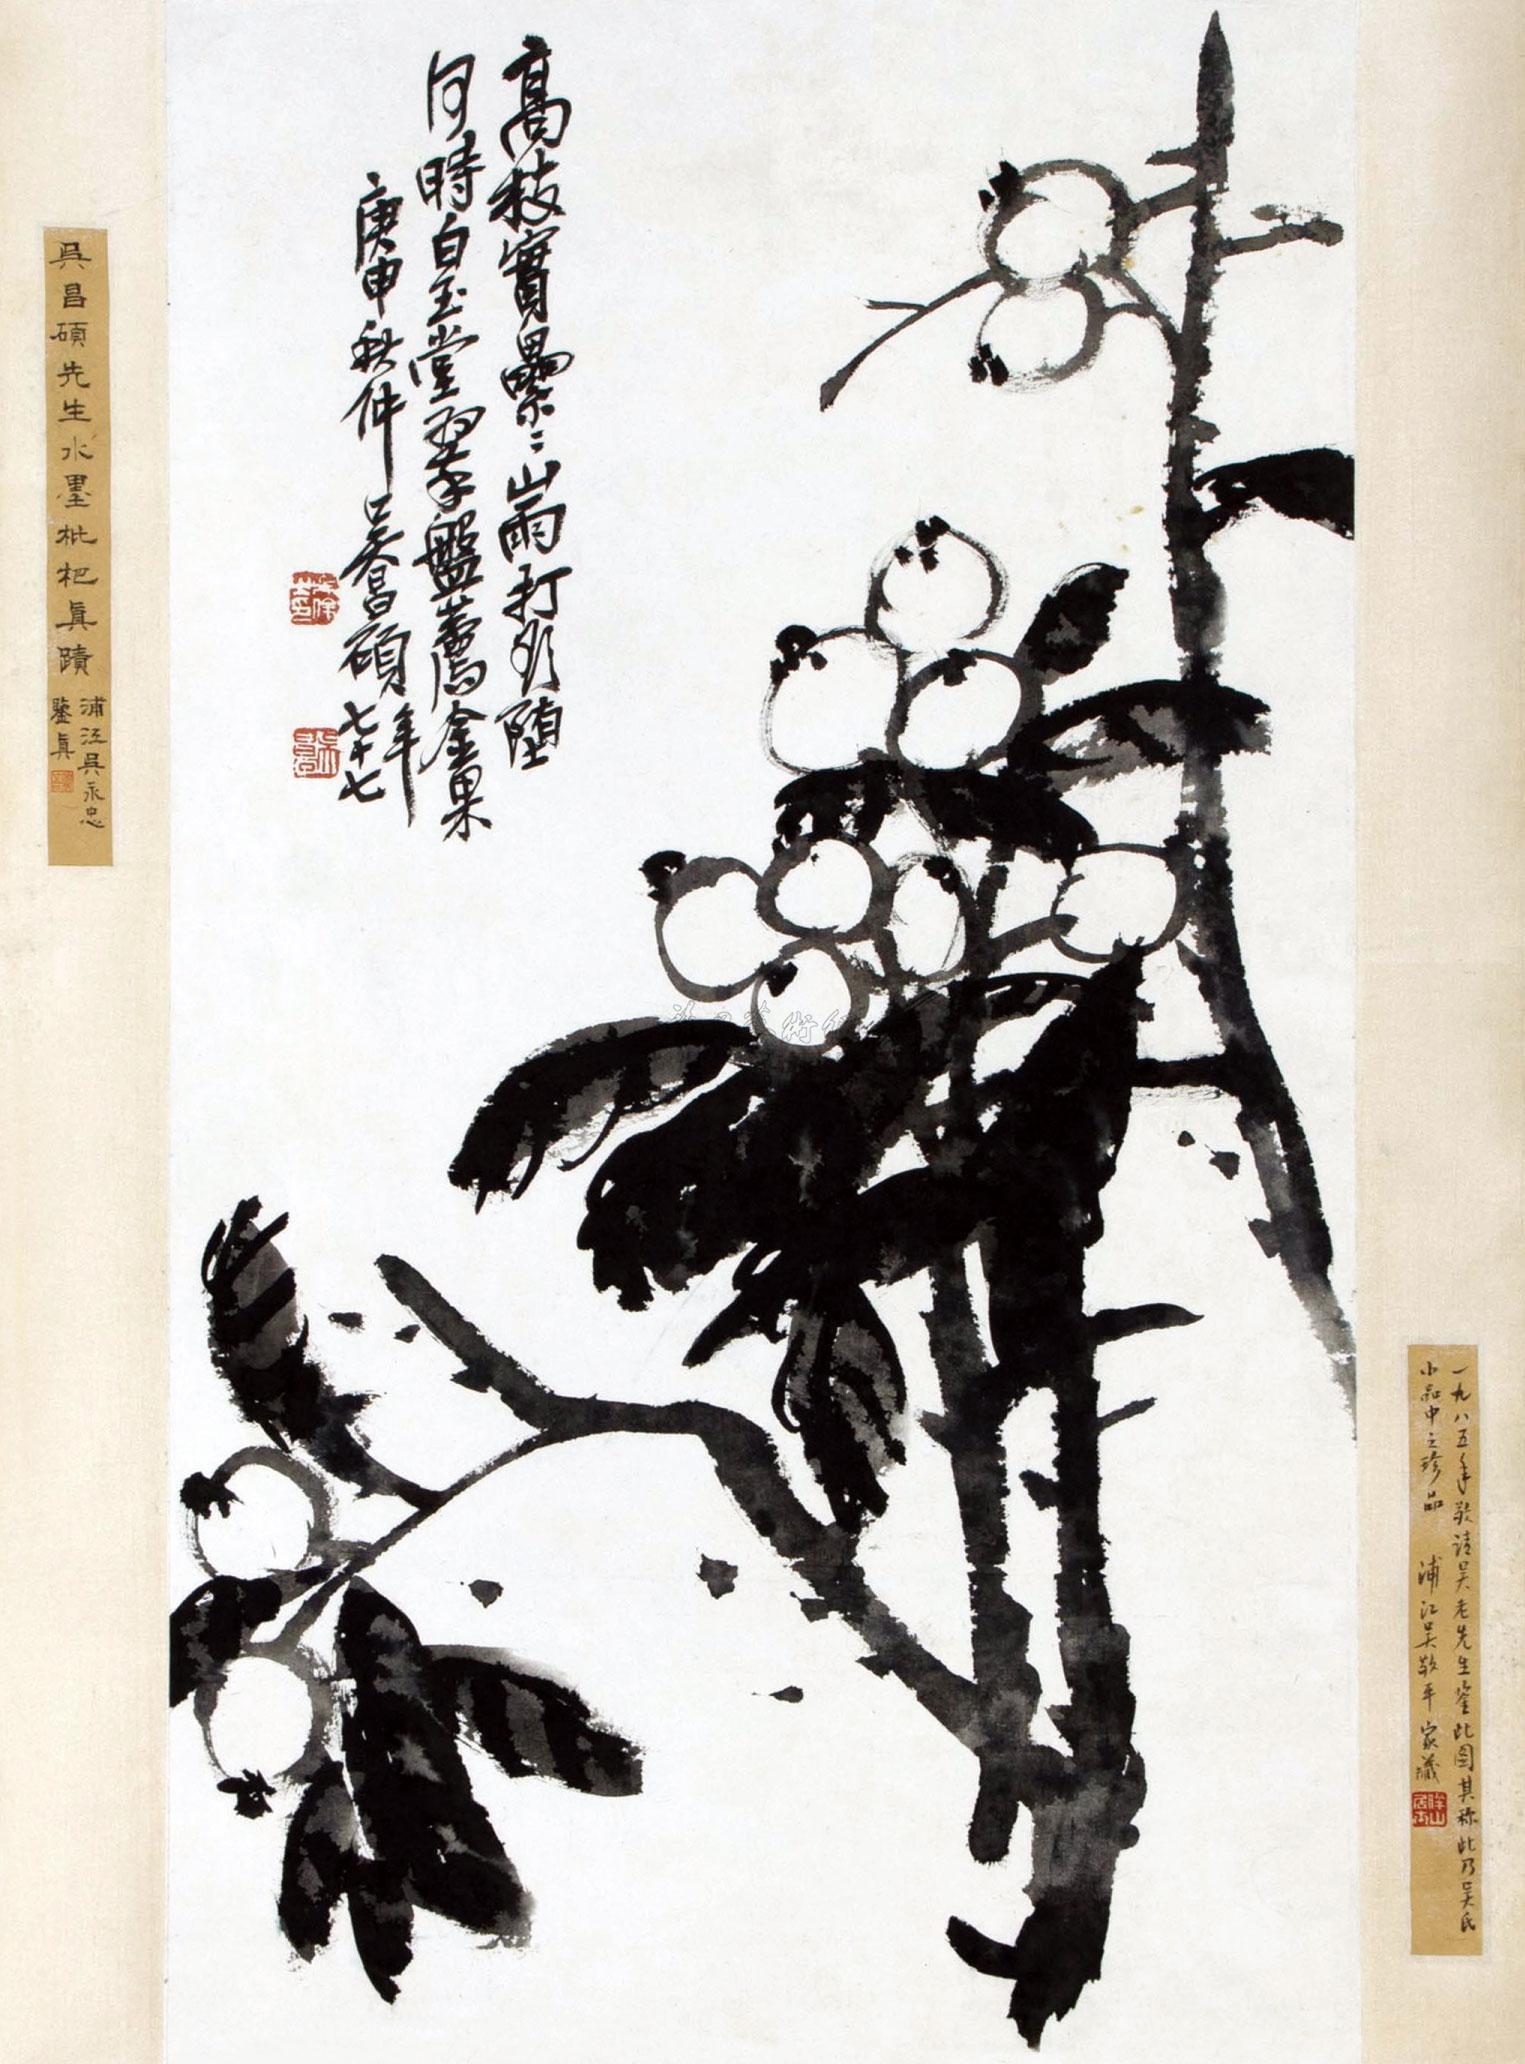 高枝實纍〻山雨打欲墮
何時白玉堂翠盤薦金果
庚申秋仲吳昌碩年七十七
吳昌碩先生水墨枇杷真蹟
浦江吳永忠
鑒真
一九八五年敬請吴老先生鉴此图其称此乃吴氏
小品中之珍品 浦江吴敬平家藏